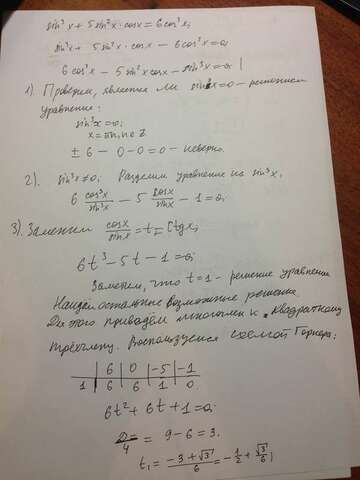 sin³x + 5sin²x·cosx = 6cos³x;
sin³x + 5sin²x·cosx − 6cos³x = 0;
6cos³x − 5sin²x cosx − sin³x = 0. |
1) Проверим, является ли sin³x = 0 – решением
уравнения:
sin³x = 0;
x = πn, n ∈ Z
± 6 − 0 − 0 = 0 – неверно.
2). sin³x ≠ 0; Разделим уравнение на sin³x,
6 cos³x/sin³x − 5 cosx/sinx − 1 = 0;
3) Заменим cosx/sinx = t = ctgx;
6t³ − 5t − 1 = 0;
Заметим, что t = 1 – решение уравнения
Найдём остальные возможные решения.
Для этого приведём многочлен к квадратному
трёхчлену. Воспользуемся схемой Горнера:
| 6 | 0 | −5 | −1
1 | 6 | 6 | 1 | 0
6t² + 6t + 1 = 0;
D/4 = 9 − 6 = 3.
t₁ = (−3 + √3)/6 = −1/2 + √3/6;